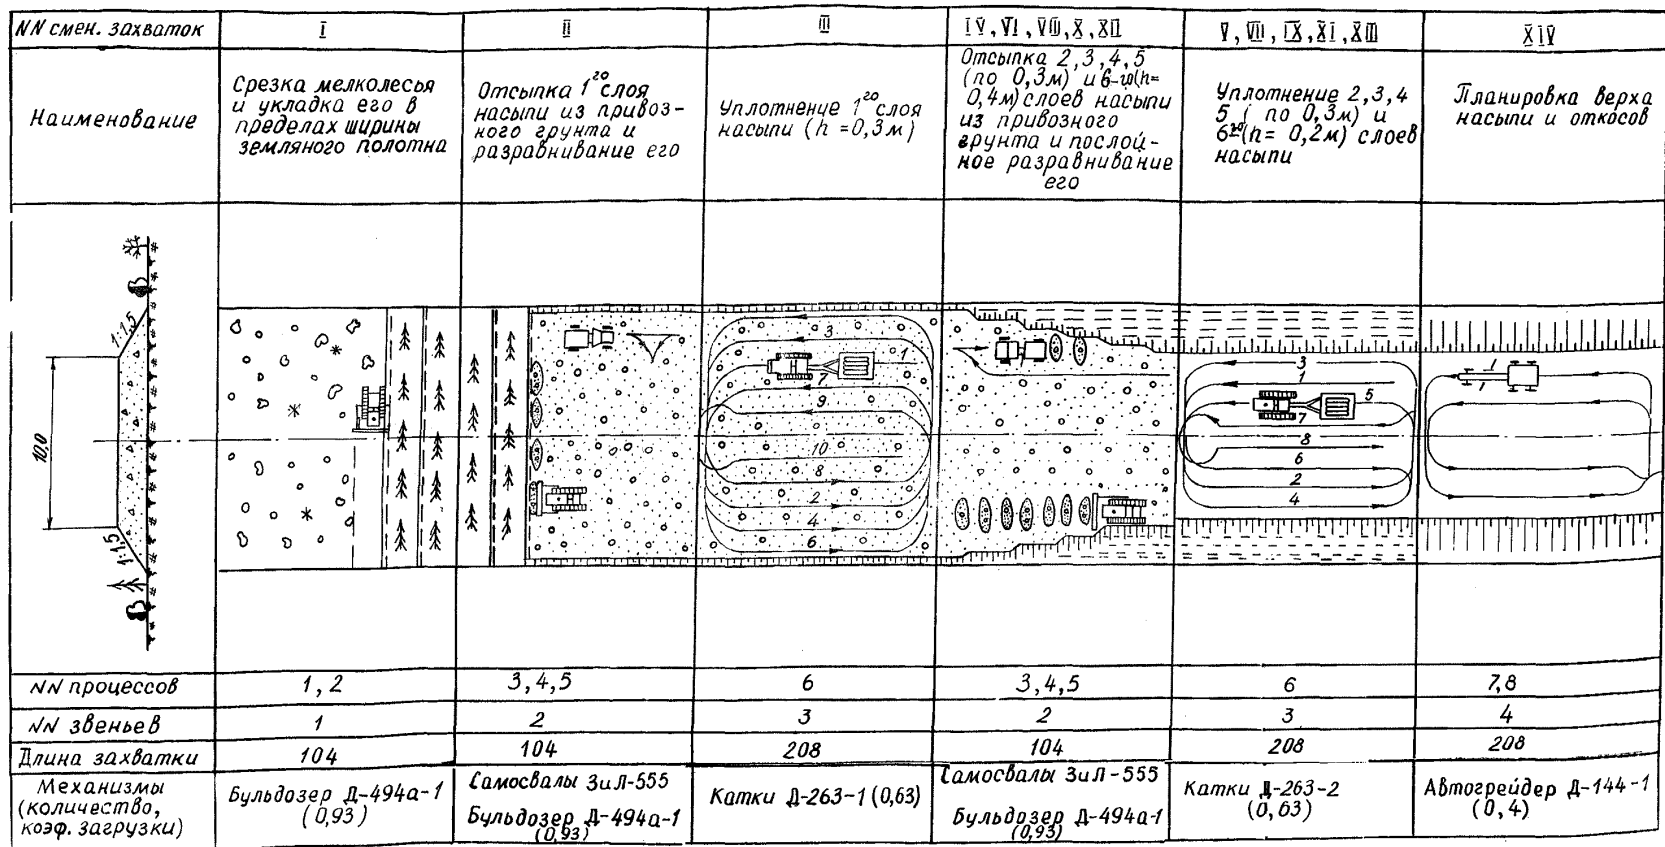 NN смен. захваток
I
II
III
IV, VI, VIII, X, XII
V, VII, IX, XI, XIII
XIV
Наименование
Срезка мелколесья
и укладка его в
пределах ширины
земляного полотна
Отсыпка 1го слоя
насыпи из привоз-
ного грунта и
разравнивание его
Уплотнение 1го слоя
насыпи (h =0,3м)
Отсыпка 2,3,4,5
(по 0,3м) и 6-го(h=
0,4м) слоев насыпи
из привозного
грунта и послой-
ное разравнивание
его
Уплотнение 2,3,4
5 ( по 0,3м) и
6го(h= 0,2м) слоев
насыпи
Планировка верха
насыпи и откосов
1:1,5
10,0
1:1,5
3
1
7
9
10
8
2
4
6
3
1
5
7
8
6
2
4
1
1
NN процессов
1, 2
3,4,5
6
3,4,5
6
7,8
NN звеньев
1
2
3
2
3
4
Длина захватки
104
104
208
104
208
208
Механизмы
(количество,
коэф. загрузки)
Бульдозер Д-494а-1
(0,93)
Самосвалы ЗиЛ-555
Бульдозер Д-494а-1
(0,93)
Катки Д-263-1 (0,63)
Самосвалы ЗиЛ-555
Бульдозер Д-494а-1
(0,93)
Катки Д-263-2
(0,63)
Автогрейдер Д-144-1
(0,4)